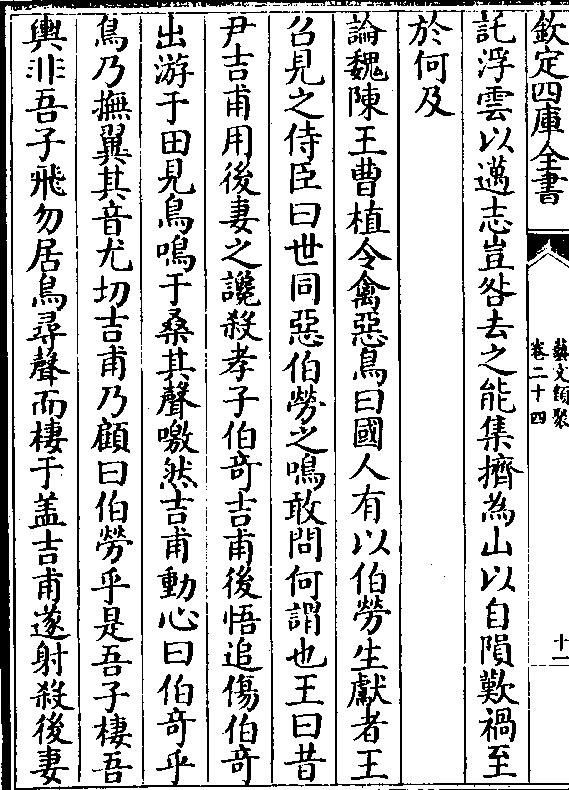 欽定四庫全書
藝文類聚
卷二十四
十一
託浮雲以邁志豈咎去之能集擠為山以自隕歎禍至
於何及
論魏陳王曹植令禽惡鳥曰國人有以伯勞生獻者王
召見之侍臣曰世同惡伯勞之鳴敢問何謂也王曰昔
尹吉甫用後妻之讒殺孝子伯奇吉甫後悟追傷伯奇
出游于田見鳥鳴于桑其聲噭然吉甫動心曰伯奇乎
鳥乃撫翼其音尤切吉甫乃顧曰伯勞乎是吾子棲吾
輿非吾子飛勿居鳥尋聲而棲于盖吉甫遂射殺後妻